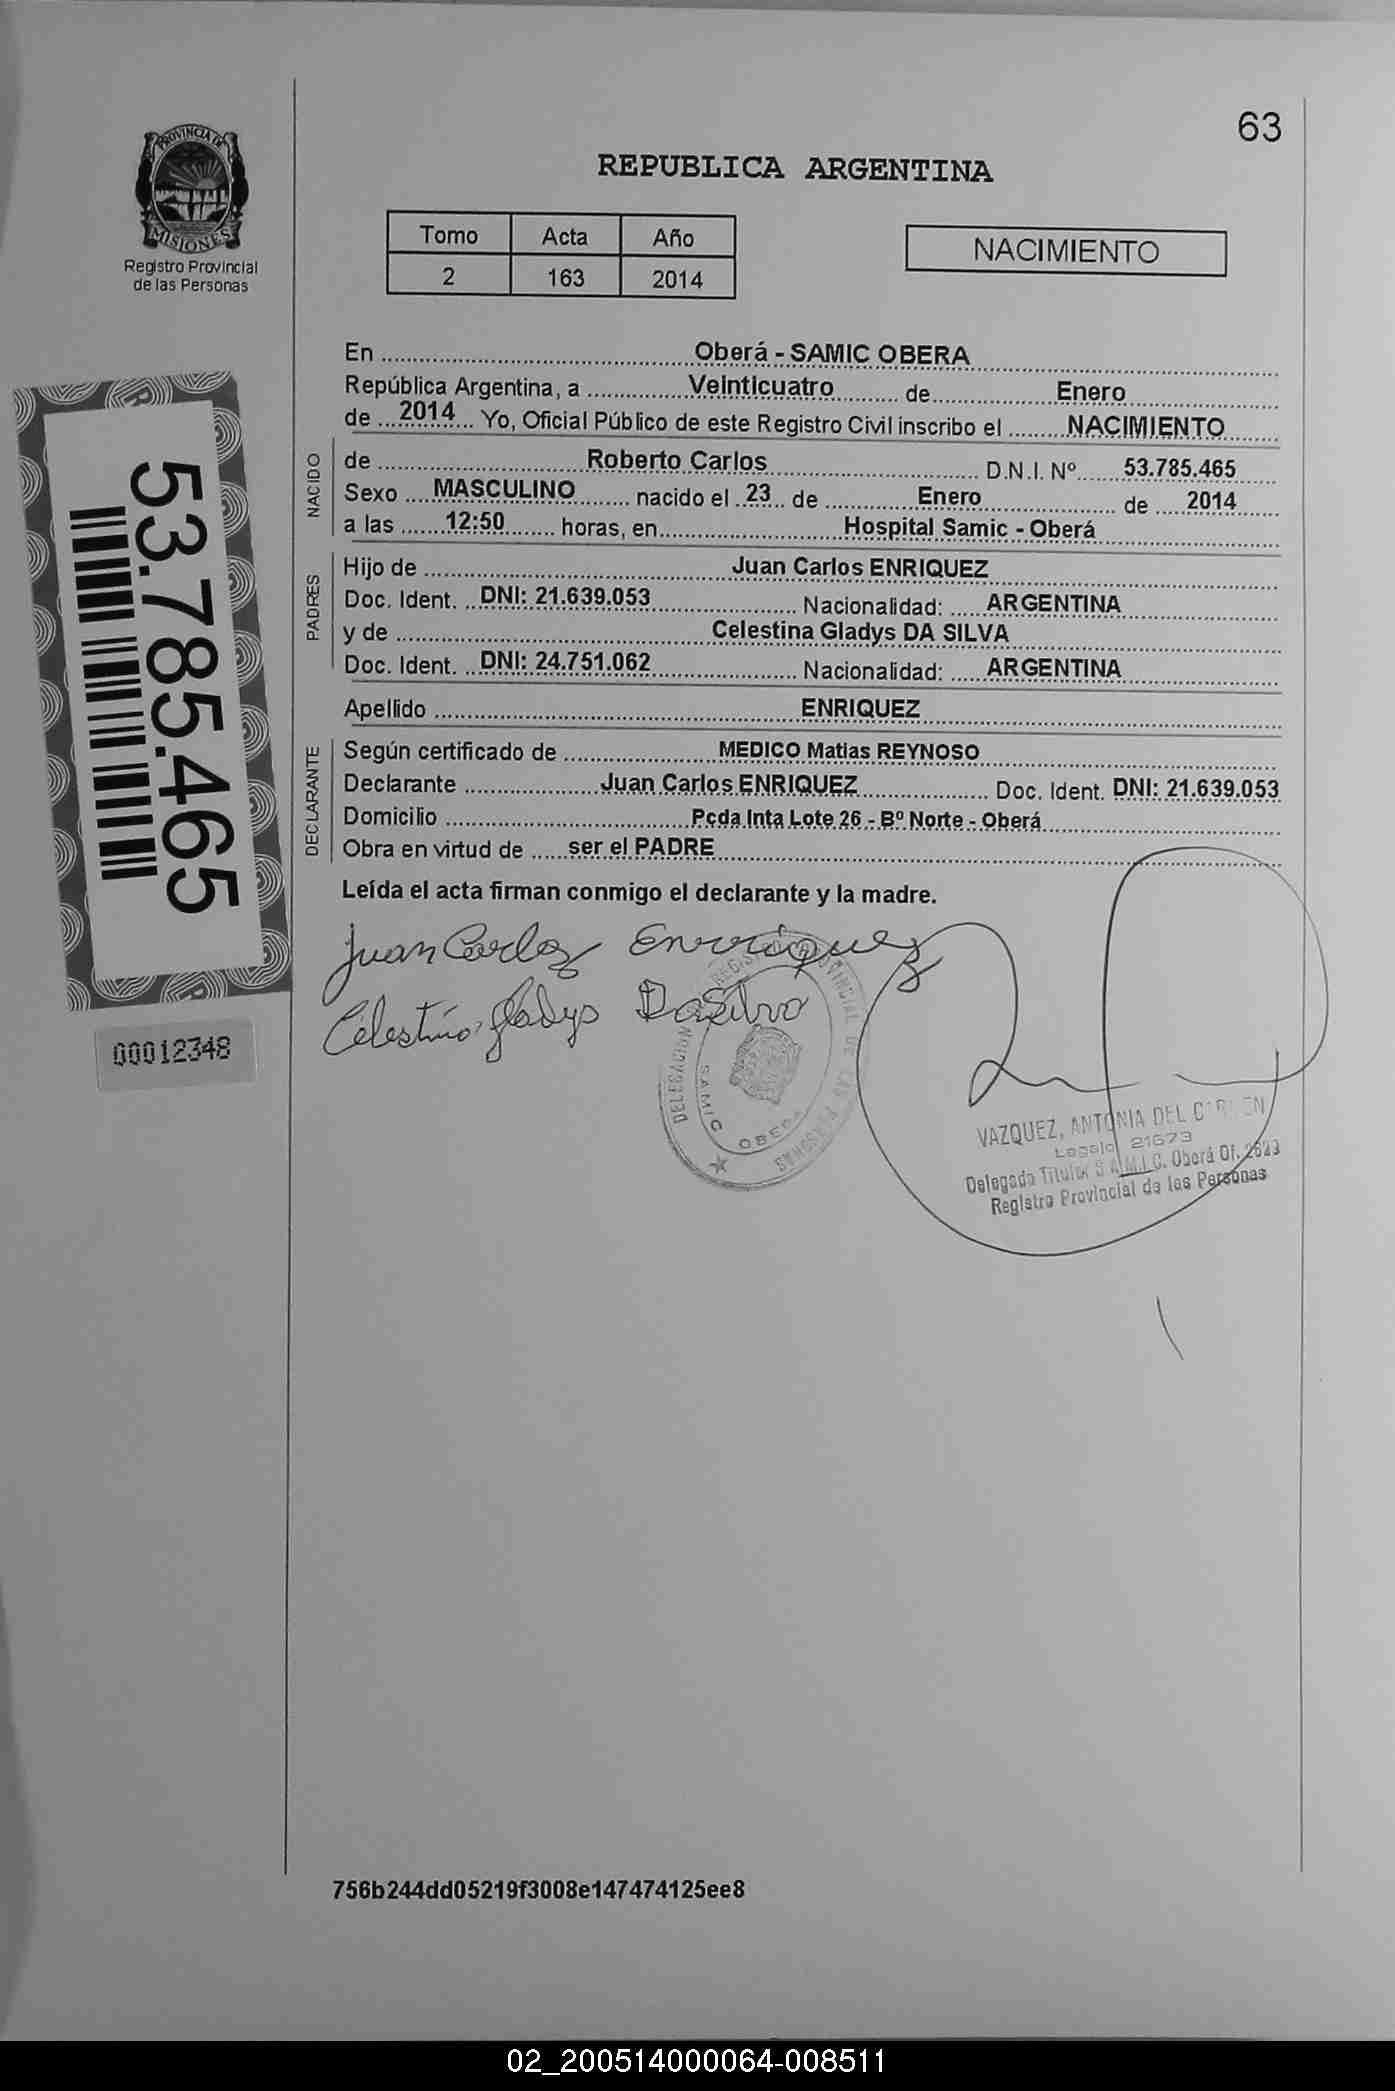 63
REPUBLICA ARGENTINA
PROVINCIA DE
MISIONES
Registro Provincial
de las Personas
Tomo Acta Año
2 163 2014
NACIMIENTO
En Oberá - SAMIC OBERA
República Argentina, a Veinticuatro de Enero
de 2014 Yo, Oficial Público de este Registro Civil inscribo el NACIMIENTO
NACIDO
de Roberto Carlos D.N.I. Nº 53.785.465
Sexo MASCULINO nacido el 23 de Enero de 2014
a las 12:50 horas, en Hospital Samic - Oberá
PADRES
Hijo de Juan Carlos ENRIQUEZ
Doc. Ident. DNI: 21.639.053 Nacionalidad: ARGENTINA
y de Celestina Gladys DA SILVA
Doc. Ident. DNI: 24.751.062 Nacionalidad: ARGENTINA
Apellido ENRIQUEZ
DECLARANTE
Según certificado de MEDICO Matias REYNOSO
Declarante Juan Carlos ENRIQUEZ Doc. Ident. DNI: 21.639.053
Domicilio Pcda Inta Lote 26 - Bº Norte - Oberá
Obra en virtud de ser el PADRE
Leída el acta firman conmigo el declarante y la madre.
53.785.465
00012348
Juan Carlos Enrriquez
Celestina Gladys Da Silva
DELEGACION REGISTRO PROVINCIAL DE LAS PERSONAS
SAMIC OBERA
VAZQUEZ, ANTONIA DEL
Legajo 21673
Delegada Titular S.A.M.I.C. Oberá Of. 2623
Registro Provincial de las Personas
756b244dd05219f3008e147474125ee8
02_200514000064-008511